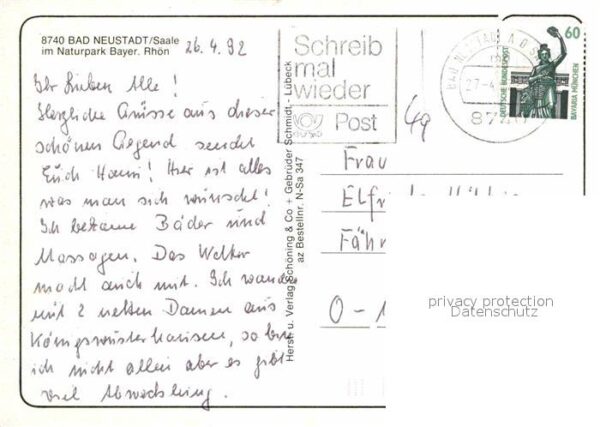 8740 BAD NEUSTADT/Saale
im Naturpark Bayer. Rhön
26.4.92
Ihr Lieben Alle!
Herzliche Grüsse aus dieser
schönen Gegend sendet
Euch Hanni! Hier ist alles
was man sich wünscht!
Ich bekomme Bäder und
Massagen. Das Wetter
macht auch mit. Ich wandre
mit 2 netten Damen aus
Königswusterhausen, so bin
ich nicht allein aber es gibt
viel Abwechslung.
Herst. u. Verlag Schöning & Co + Gebrüder Schmidt - Lübeck
az Bestellnr. N-Sa 347
Schreib
mal
wieder
Post
27.4.
87
60
DEUTSCHE BUNDESPOST
BAVARIA MÜNCHEN
Frau
Fähr
O-1
privacy protection
Datenschutz